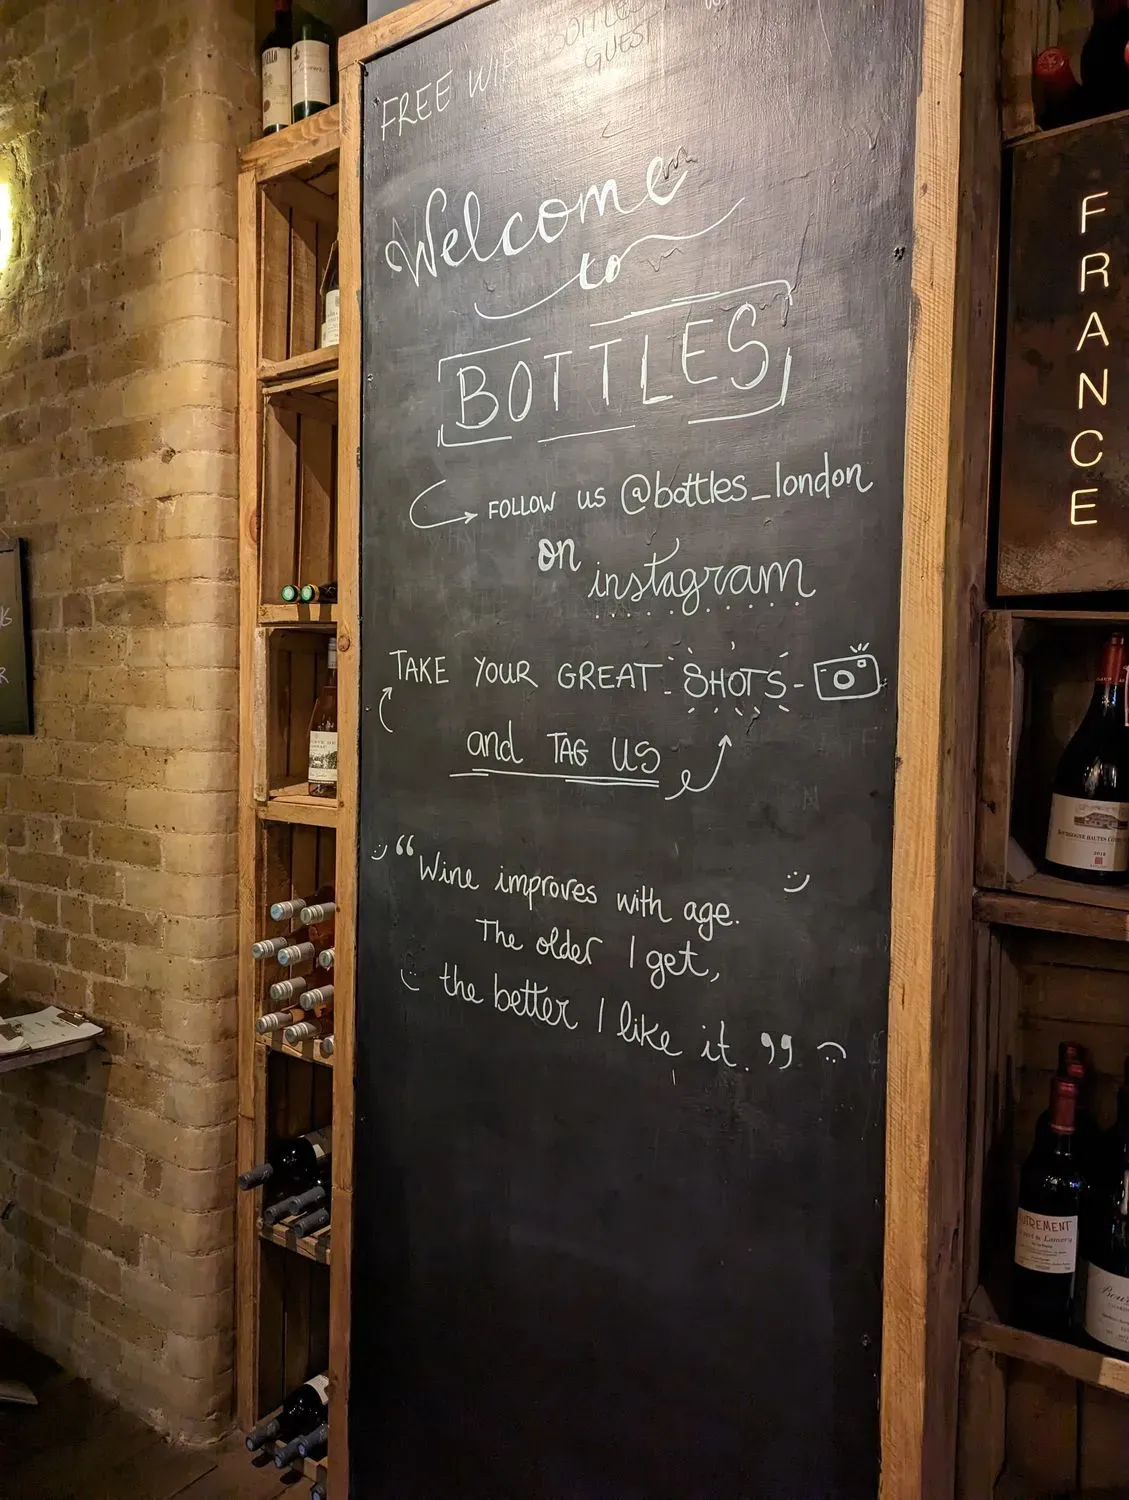 FREE WI
BOTTLES
GUEST
Welcome
to
BOTTLES
FOLLOW us @bottles_london
on instagram
TAKE YOUR GREAT SHOTS
and TAG US
“Wine improves with age.
The older I get,
the better I like it.”
FRANCE
BOURGOGNE HAUTES
AUTREMENT